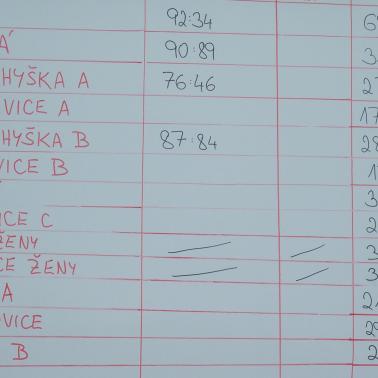 92:34 6
Á 90:89 3
HYŠKA A 76:46 2
VICE A 17
HYŠKA B 87:84 28
VICE B 1
3
ICE C 2
ŽENY 3
CE ŽENY 3
A 2
OVICE 29
B 2